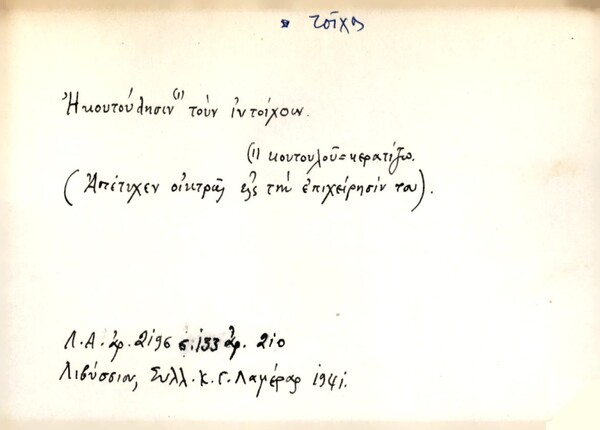 * τοῖχος
Ἠκουτούλησιν (1) τοὺν ἰντοίχουν.
(1) κουτουλοῦ = κερατίζω.
(Ἀπέτυχεν οἰκτρῶς εἰς τὴν ἐπιχείρησίν του).
Λ.Α. ἀρ. 2196 σ. 133 ἀρ. 210
Λιβύσσιον, Συλλ. Κ. Γ. Λαμέρας 1941.